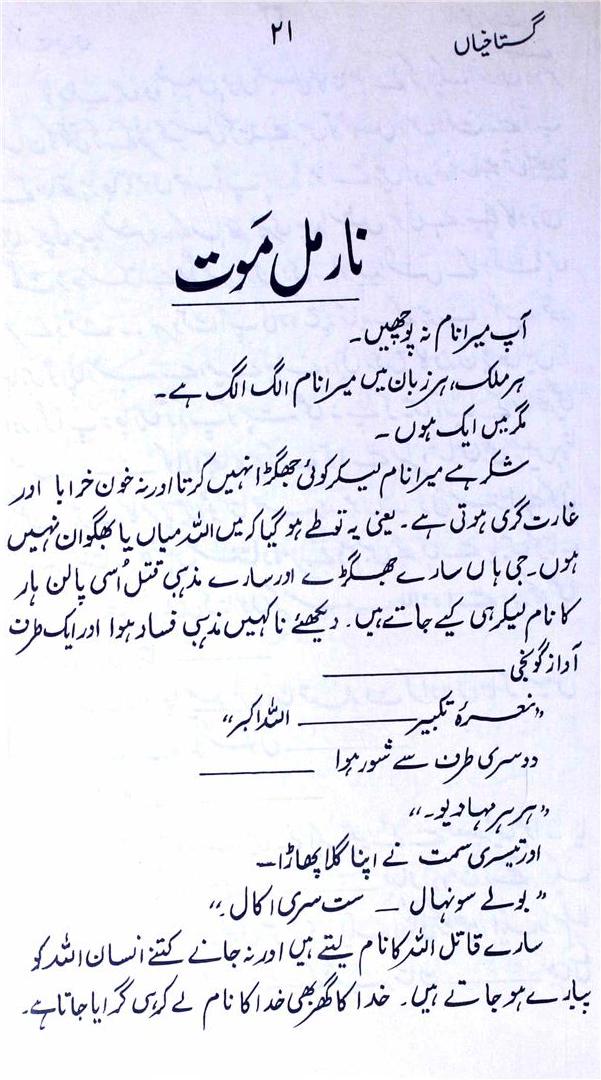 گستاخیاں
۲۱
نارمل مَوت
آپ میرا نام نہ پوچھیں۔
ہر ملک، ہر زبان میں میرا نام الگ الگ ہے۔
مگر میں ایک ہوں۔
شکر ہے میرا نام لیکر کوئی جھگڑا نہیں کرتا اور نہ خون خرابا اور
غارت گری ہوتی ہے۔ یعنی یہ تو طے ہو گیا کہ میں اللہ میاں یا بھگوان نہیں
ہوں۔ جی ہاں سارے جھگڑے اور سارے مذہبی قتل اُسی پالن ہار
کا نام لیکر ہی کیے جاتے ہیں۔ دیکھئے نا کہیں مذہبی فساد ہوا اور ایک طرف
آواز گونجی ــــــــــ
”نعرۂ تکبیر ــــــــــ اللہ اکبر“
دوسری طرف سے شور ہوا ــــــــــ
”ہر ہر مہادیو۔“
اور تیسری سمت نے اپنا گلا پھاڑا ــ
”بولے سو نہال ــ ست سری اکال۔“
سارے قاتل اللہ کا نام لیتے ہیں اور نہ جانے کتنے انسان اللہ کو
پیارے ہو جاتے ہیں۔ خدا کا گھر بھی خدا کا نام لے کر ہی گرایا جاتا ہے۔